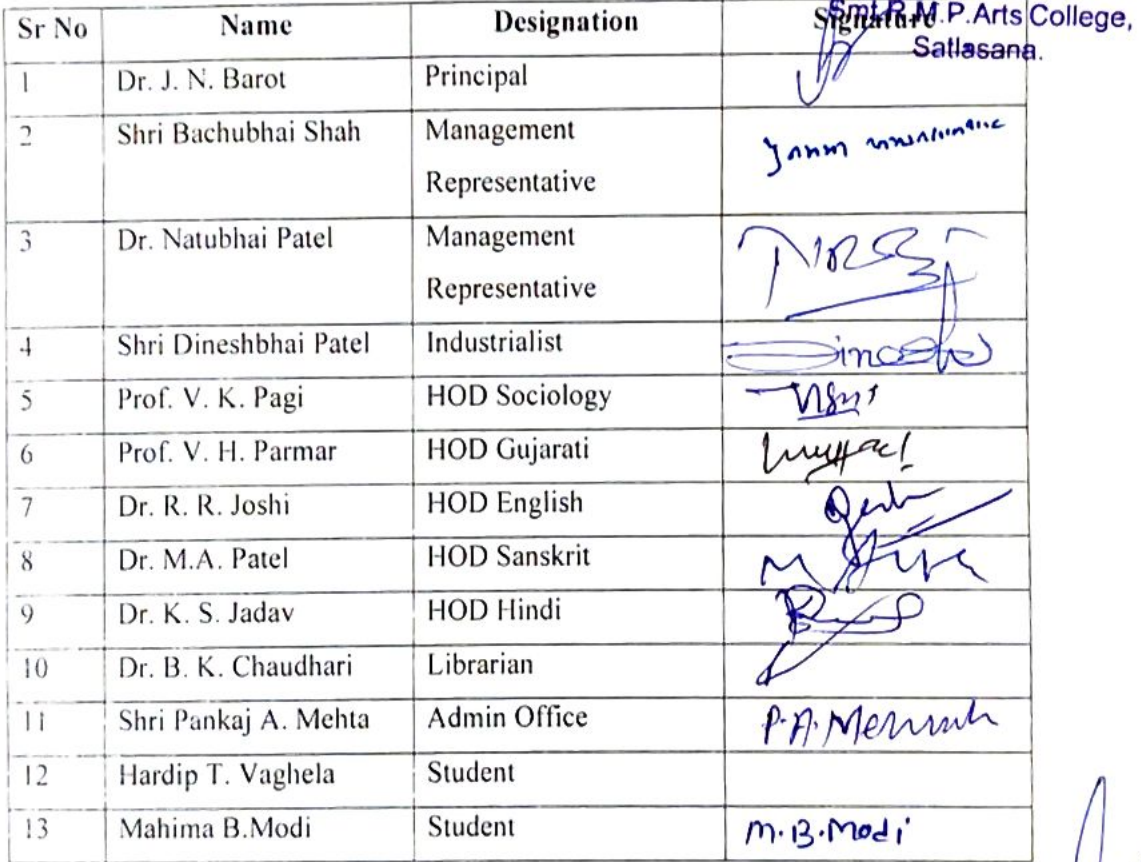 Sr No Name Designation Signature
Smt.R.M.P.Arts College,
Satlasana.
1 Dr. J. N. Barot Principal
2 Shri Bachubhai Shah Management
Representative
3 Dr. Natubhai Patel Management
Representative
4 Shri Dineshbhai Patel Industrialist
5 Prof. V. K. Pagi HOD Sociology
6 Prof. V. H. Parmar HOD Gujarati
7 Dr. R. R. Joshi HOD English
8 Dr. M.A. Patel HOD Sanskrit
9 Dr. K. S. Jadav HOD Hindi
10 Dr. B. K. Chaudhari Librarian
11 Shri Pankaj A. Mehta Admin Office P.A.
12 Hardip T. Vaghela Student
13 Mahima B.Modi Student M.B.Modi